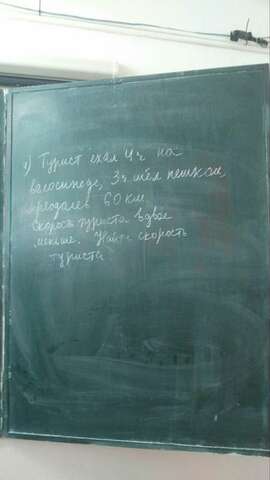 1) Турист ехал 4ч на
велосипеде, 3ч шёл пешком,
преодалев 60 км
Скорость туриста вдвое
меньше. Найти скорость
туриста